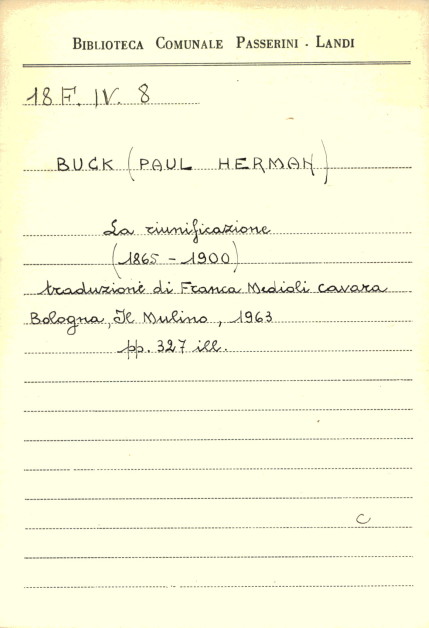 BIBLIOTECA COMUNALE PASSERINI - LANDI
18 F. IV. 8
BUCK (PAUL HERMAN)
La riunificazione
(1865 - 1900)
traduzione di Franca Medioli cavara
Bologna, Il Mulino, 1963
pp. 327 ill.
C